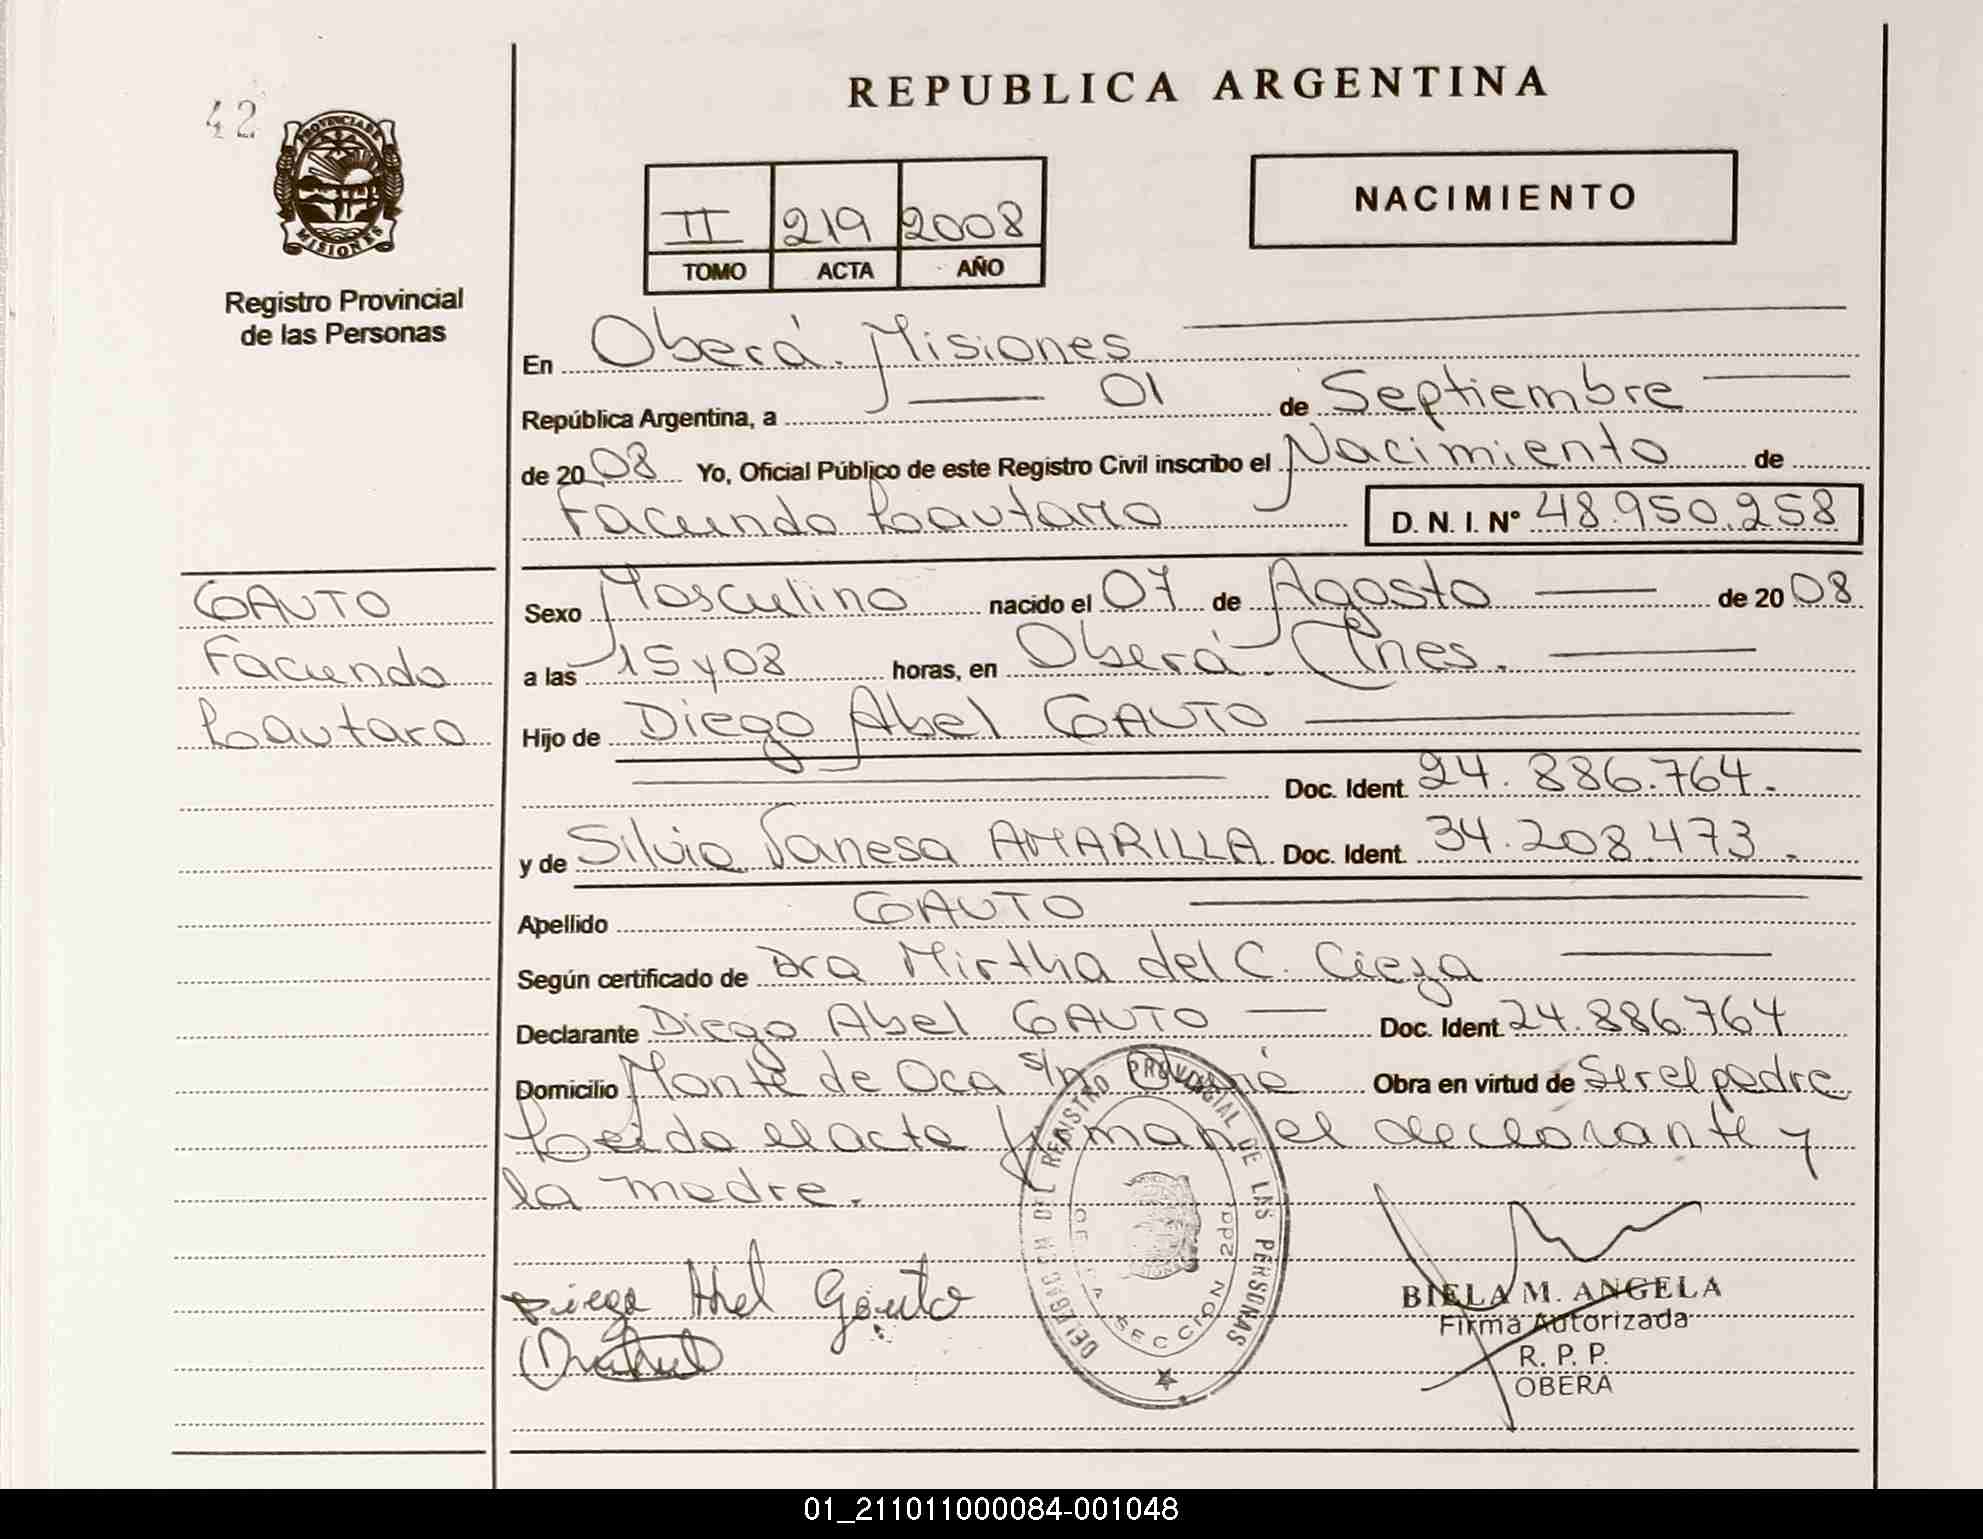 42
PROVINCIA DE
MISIONES
Registro Provincial
de las Personas
REPUBLICA ARGENTINA
II 219 2008
TOMO ACTA AÑO
NACIMIENTO
En Oberá. Misiones
República Argentina, a 01 de Septiembre
de 2008 Yo, Oficial Público de este Registro Civil inscribo el Nacimiento de
Facundo Lautaro D. N. I. N° 48.950.258
GAUTO
Facundo
Lautaro
Sexo Masculino nacido el 07 de Agosto de 2008
a las 15 y 08 horas, en Oberá. Mnes.
Hijo de Diego Abel GAUTO
Doc. Ident. 24.886.764.
y de Silvia Vanesa AMARILLA Doc. Ident. 34.208.473.
Apellido GAUTO
Según certificado de Dra Mirtha del C. Cieza
Declarante Diego Abel GAUTO Doc. Ident. 24.886.764
Domicilio Monte de Oca s/n Oberá Obra en virtud de Ser el padre
Leida el acta firman el declarante y
la madre.
DELEGACION DEL REGISTRO PROVINCIAL DE LAS PERSONAS
SECCION 2da
Diego Abel Gauto
BIELA M. ANGELA
Firma Autorizada
R. P. P.
OBERA
01_211011000084-001048